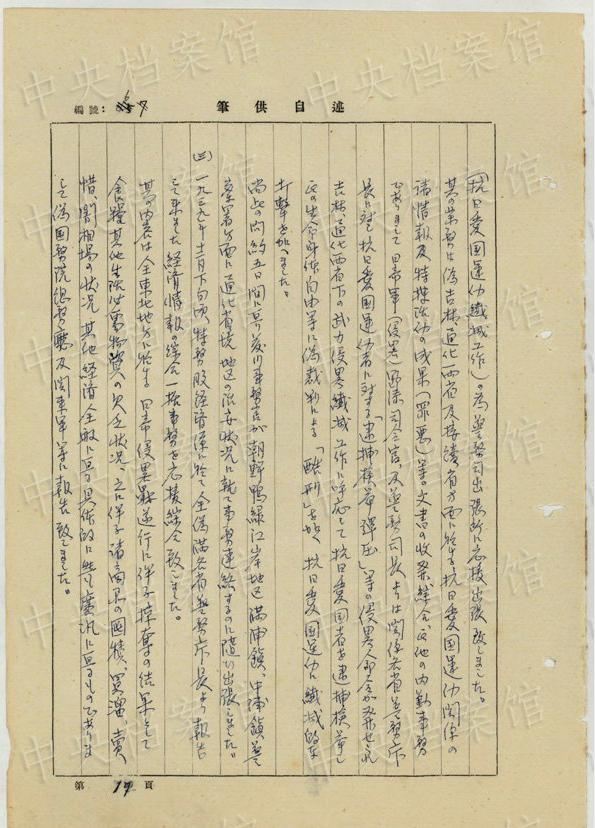 中央档案馆
編號: 67
筆供自述
(抗日愛国運仂纖滅工作)。为警務司出張所に応援出張致しました。
其の業務は偽吉林、通化两省及接讀省方面に於る抗日愛国運仂関係の
諸情報及特搜活仂の成果(罪悪)等の文書の收集綜合、其他の内勤事務
でありまして 日帝軍(侵畧)野添司令官、及警務司長よりは関係各省警務庁
長に対し抗日愛国運仂者に対する「逮捕検挙彈圧」等の侵畧命令が発せられ
吉林、通化两省下の武力侵畧纖滅工作に呼応して抗日愛国者を逮捕検挙し
其の生命身体自由等に偽裁判による「酷刑」を 抗日愛国運仂に纖滅的な
打撃を加へました。
尚此の間約五日間に 事務官が朝野鴨緑江岸地区 満浦鎮、中浦鎮警
察署方面に通化省境地区の治安状況に就て事務連絡するのに随ひ出張しました。
(三) 一九三九年十二月下旬頃 特務股経済係に於て全偽満各省警務庁長より報告
して来ました経済情報の綜合一括事務を応援綜合致しました。
其の内容は全東北地方に於る日帝侵畧戰遂行に伴ふ掠奪の結果として
食糧其他生活必需物資の欠乏状況、之に伴ふ諸商品の囤積、買溜、賣
惜、闇相場の状況 其他経済全般に亘る具体的に 廣汎に亘るものでありま
して偽国務院総務庁及関東軍等に報告致しました。
第 17 頁